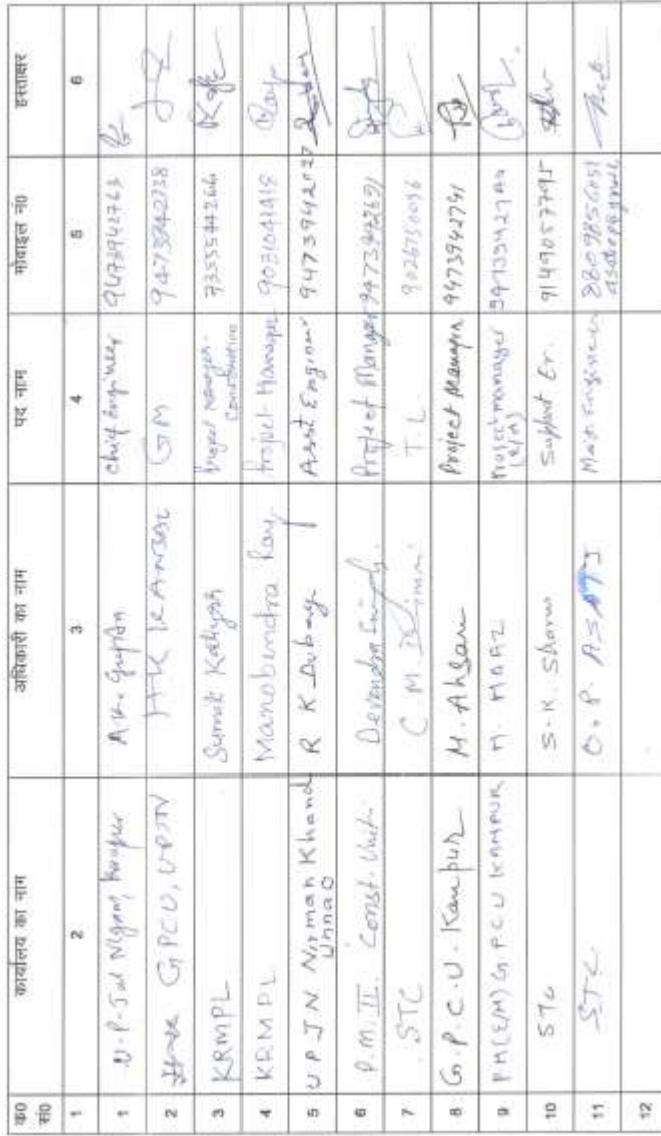 क्र0 सं0 कार्यालय का नाम अधिकारी का नाम पद नाम मोबाइल नं0 हस्ताक्षर
1 2 3 4 5 6
1 U.P. Jal Nigam, Kanpur A.K. Gupta Chief Engineer 9473942763
2 GPCU, UPJN GM 9473942738
3 KRMPL Sumit Katiyar Project Manager - Construction 7355544266
4 KRMPL Manobendra Ray Project Manager 9031041418 Ray
5 UPJN Nirman Khand Unnao R K Dubey Asst Engineer 9473942027
6 P.M. II. Const. Unit. Devendra Singh Project Manager 9473942691
7 STC C.M. T.L. 9026750096
8 G.P.C.U. Kanpur M. Ahsan Project Manager 9473942791
9 PM(E/M) GPCU KANPUR M. MAAZ Project Manager (E/M)
10 STC S.K. Sharma Support Er. 9149057795
11 STC O.P. 8809856051
12